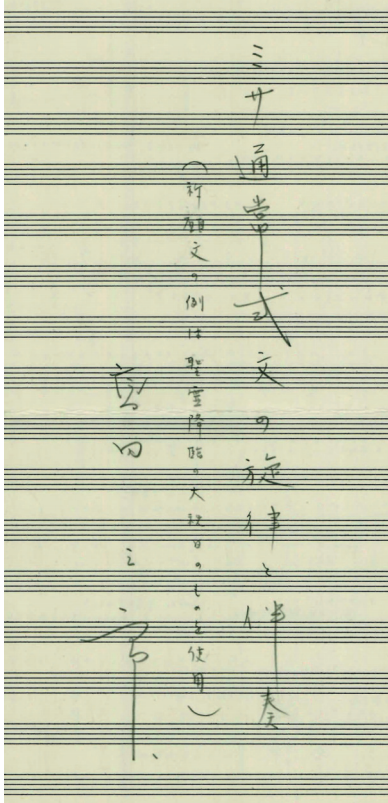 ミサ通常式文の旋律と伴奏
(祈願文の例は聖霊降臨の大祝日のものを使用)
高田三郎